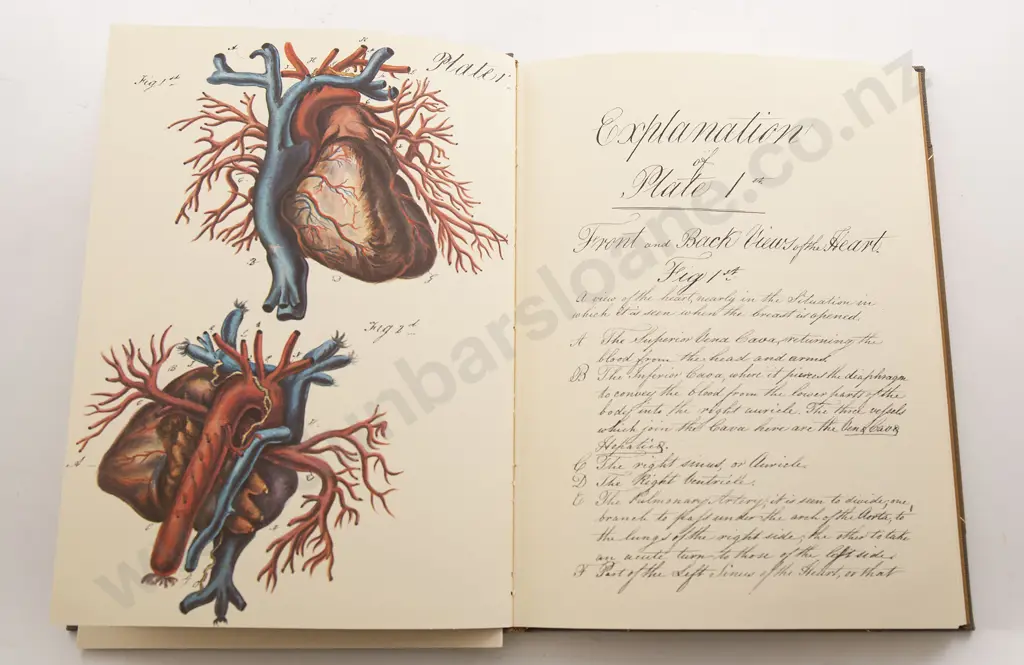 Plate 1st
Fig 1st
Fig 2d
Explanation
of
Plate 1st
Front and Back Views of the Heart.
Fig 1st
A view of the heart, nearly in the Situation in
which it is seen when the breast is opened.
A The Superior Vena Cava, returning the
blood from the head and arms.
B The Inferior Cava, where it pierces the diaphragm
to convey the blood from the lower parts of the
body into the right auricle. The three vessels
which join the Cava here are the Venæ Cavæ
Hepaticæ.
C The right sinus, or Auricle.
D The Right Ventricle.
E The Pulmonary Artery; it is seen to divide, one
branch to pass under the arch of the Aorta, to
the lungs of the right side; the other to take
an acute turn to those of the left side.
F Part of the Left Sinus of the Heart, or that
www.dunbarsloane.co.nz